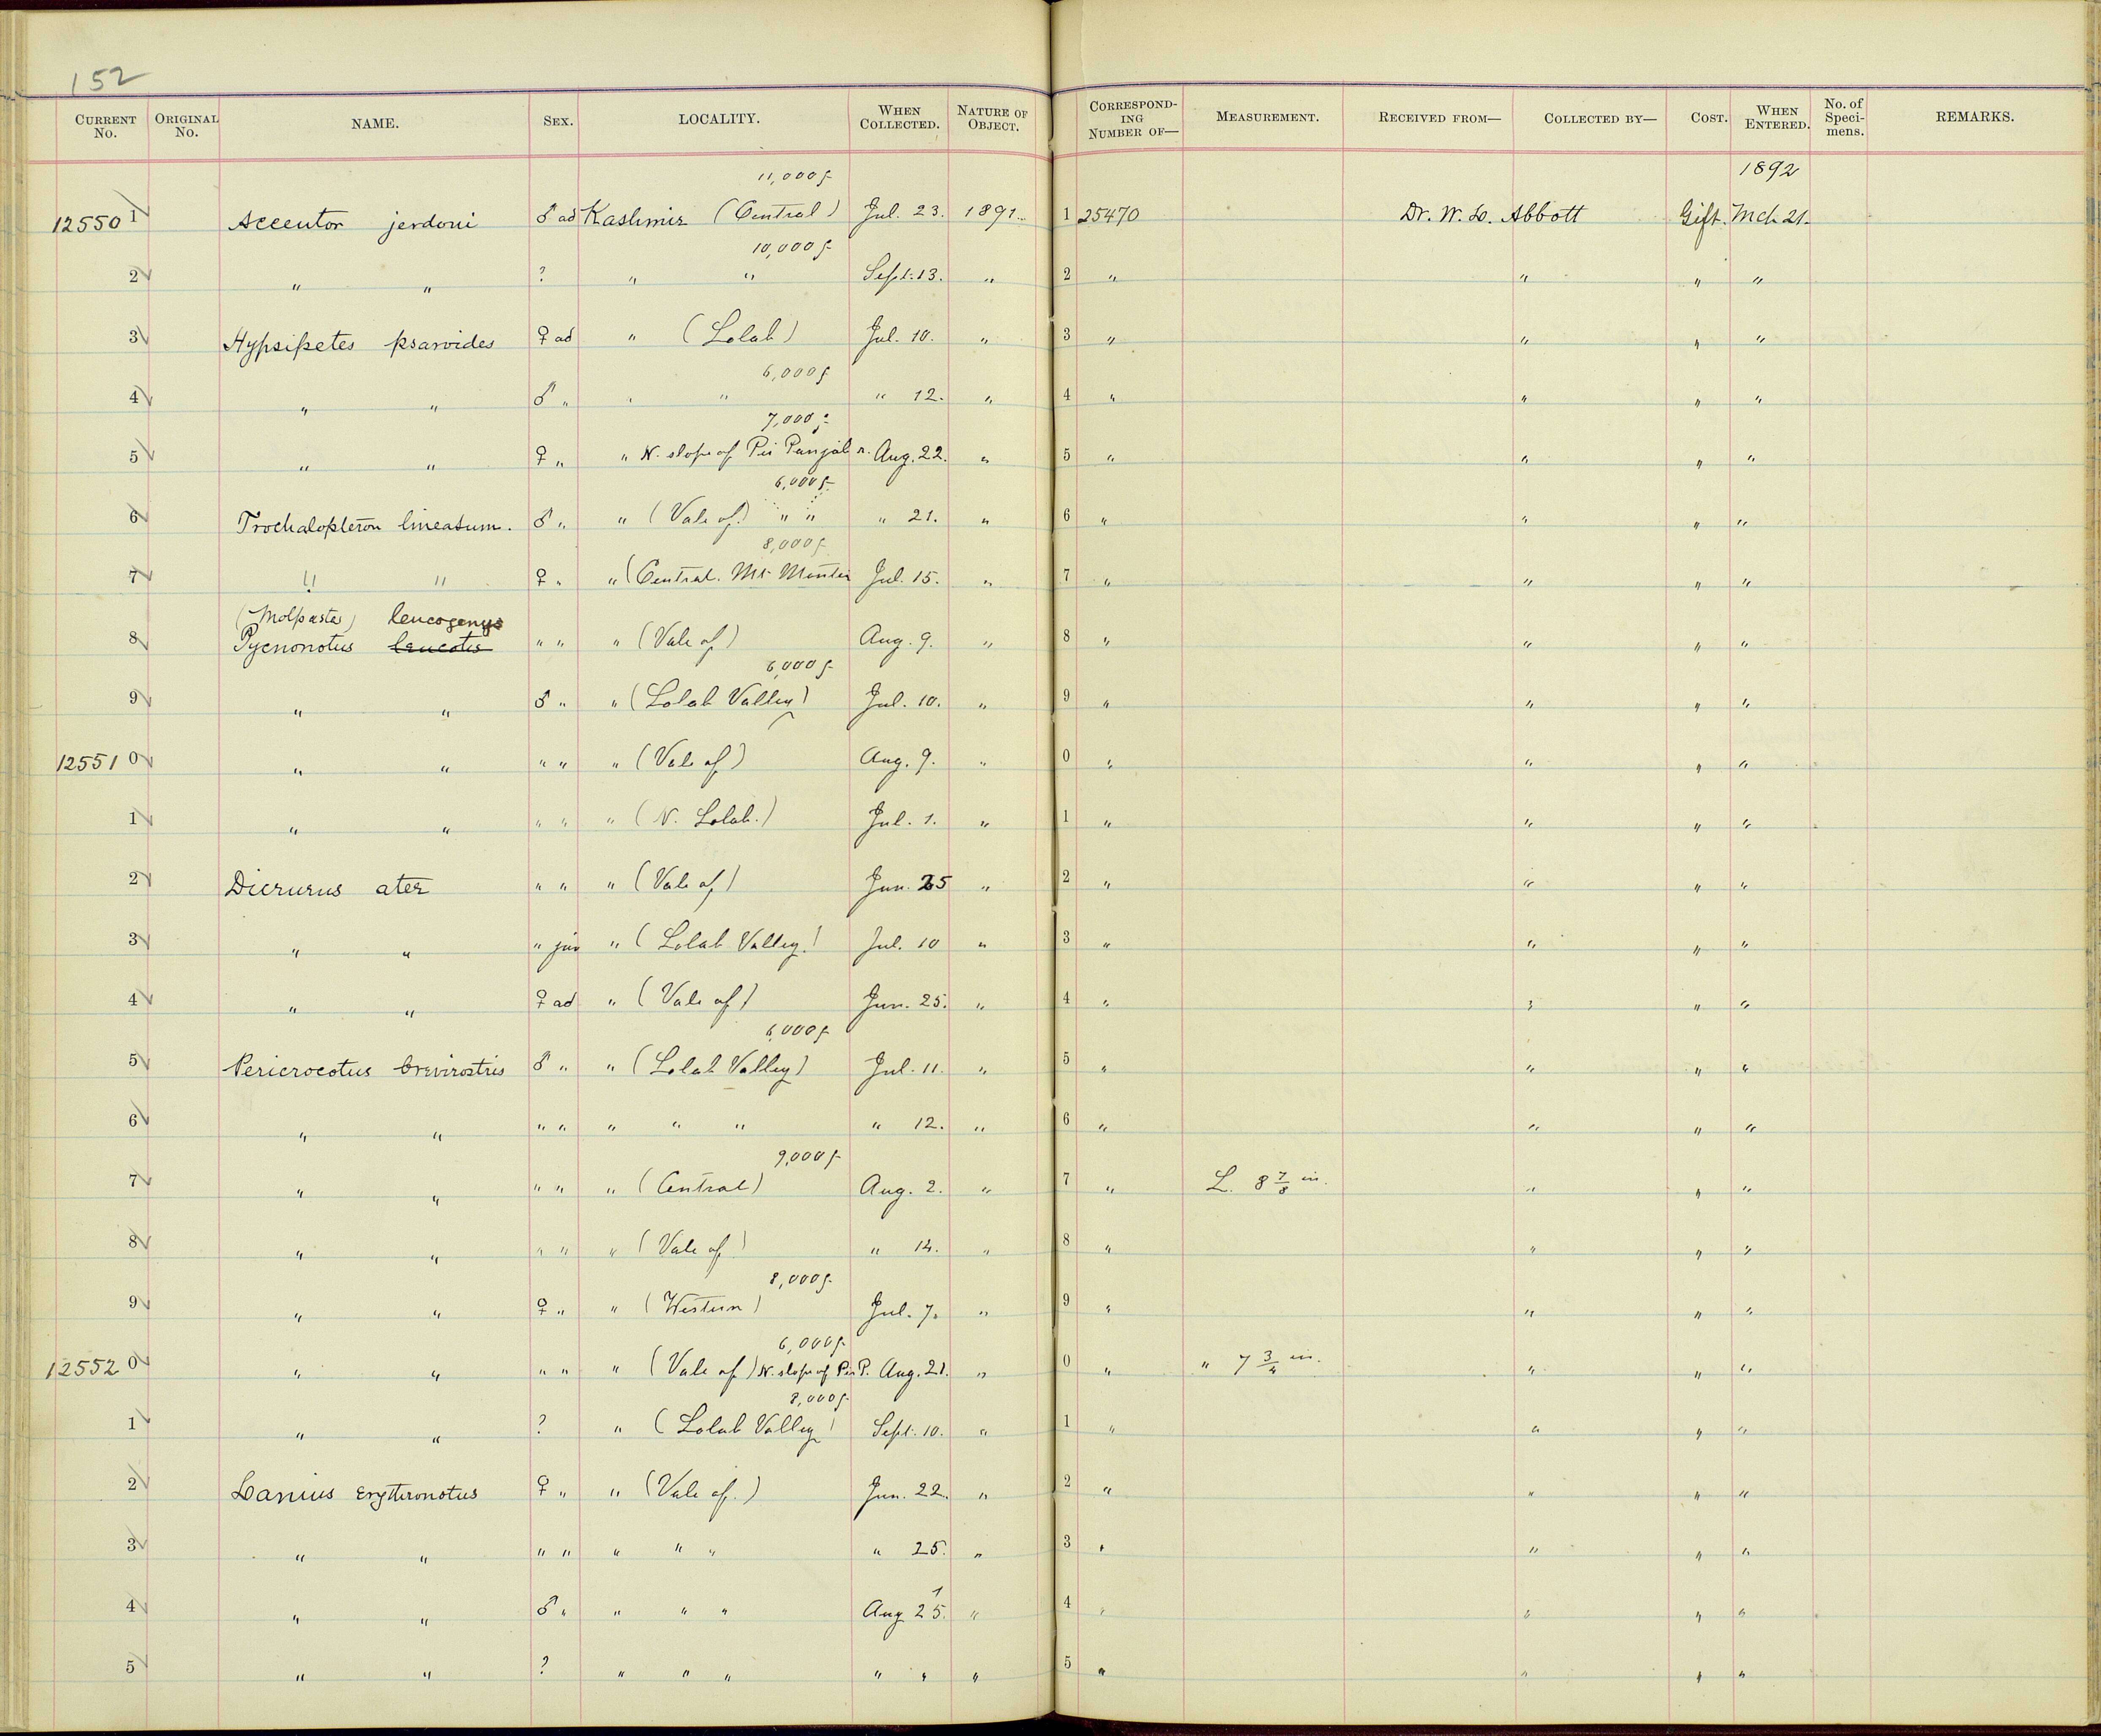 152
CURRENT No. ORIGINAL No. NAME. SEX. LOCALITY. WHEN COLLECTED. NATURE OF OBJECT. CORRESPONDING NUMBER OF— MEASUREMENT. RECEIVED FROM— COLLECTED BY— COST. WHEN ENTERED. No. of Specimens. REMARKS.
11,000 f. 1892
12550 1 Accentor jerdoni ♂ ad Kashmir (Central) Jul. 23. 1891. 1 25470 Dr. W. L. Abbott Gift. Mch 21.
10,000 f.
2 " " ? " " Sept. 13. " 2 " " " "
3 Hypsipetes psaroides ♀ ad " (Lolab) Jul. 10. " 3 " " " "
6,000 f
4 " " ♂ " " " " 12. " 4 " " " "
7,000 f.
5 " " ♀ " " N. slope of Pir Panjal r. Aug. 22. " 5 " " " "
6,000 f.
6 Trochalopteron lineatum. ♂ " " (Vale of) " " " 21. " 6 " " " "
8,000 f.
7 " " ♀ " " (Central. Mt Jul. 15. " 7 " " " "
(Molpastes) leucogenys
8 Pycnonotus leucotis " " " (Vale of) Aug. 9. " 8 " " " "
6,000 f.
9 " " ♂ " " (Lolab Valley) Jul. 10. " 9 " " " "
12551 0 " " " " " (Vale of) Aug. 9. " 0 " " " "
1 " " " " " (N. Lolab.) Jul. 1. " 1 " " " "
2 Dicrurus ater " " " (Vale of) Jun. 25 " 2 " " " "
3 " " " juv " (Lolab Valley) Jul. 10 " 3 " " " "
4 " " ♀ ad " (Vale of) Jun. 25. " 4 " " " "
6,000 f.
5 Pericrocotus brevirostris ♂ " " (Lolab Valley) Jul. 11. " 5 " " " "
6 " " " " " " " " 12. " 6 " " " "
9,000 f.
7 " " " " " (Central) Aug. 2. " 7 " L. 8 7/8 in. " " "
8 " " " " " (Vale of) " 14. " 8 " " " "
8,000 f.
9 " " ♀ " " (Western) Jul. 7. " 9 " " " "
6,000 f.
12552 0 " " " " " (Vale of) N. slope of Pir P. Aug. 21. " 0 " " 7 3/4 in. " " "
8,000 f.
1 " " ? " (Lolab Valley) Sept. 10. " 1 " " " "
2 Lanius erythronotus ♀ " " (Vale of.) Jun. 22. " 2 " " " "
3 " " " " " " " " 25. " 3 " " " "
4 " " ♂ " " " " Aug 25. " 4 " " " "
5 " " ? " " " " " " 5 " " " "